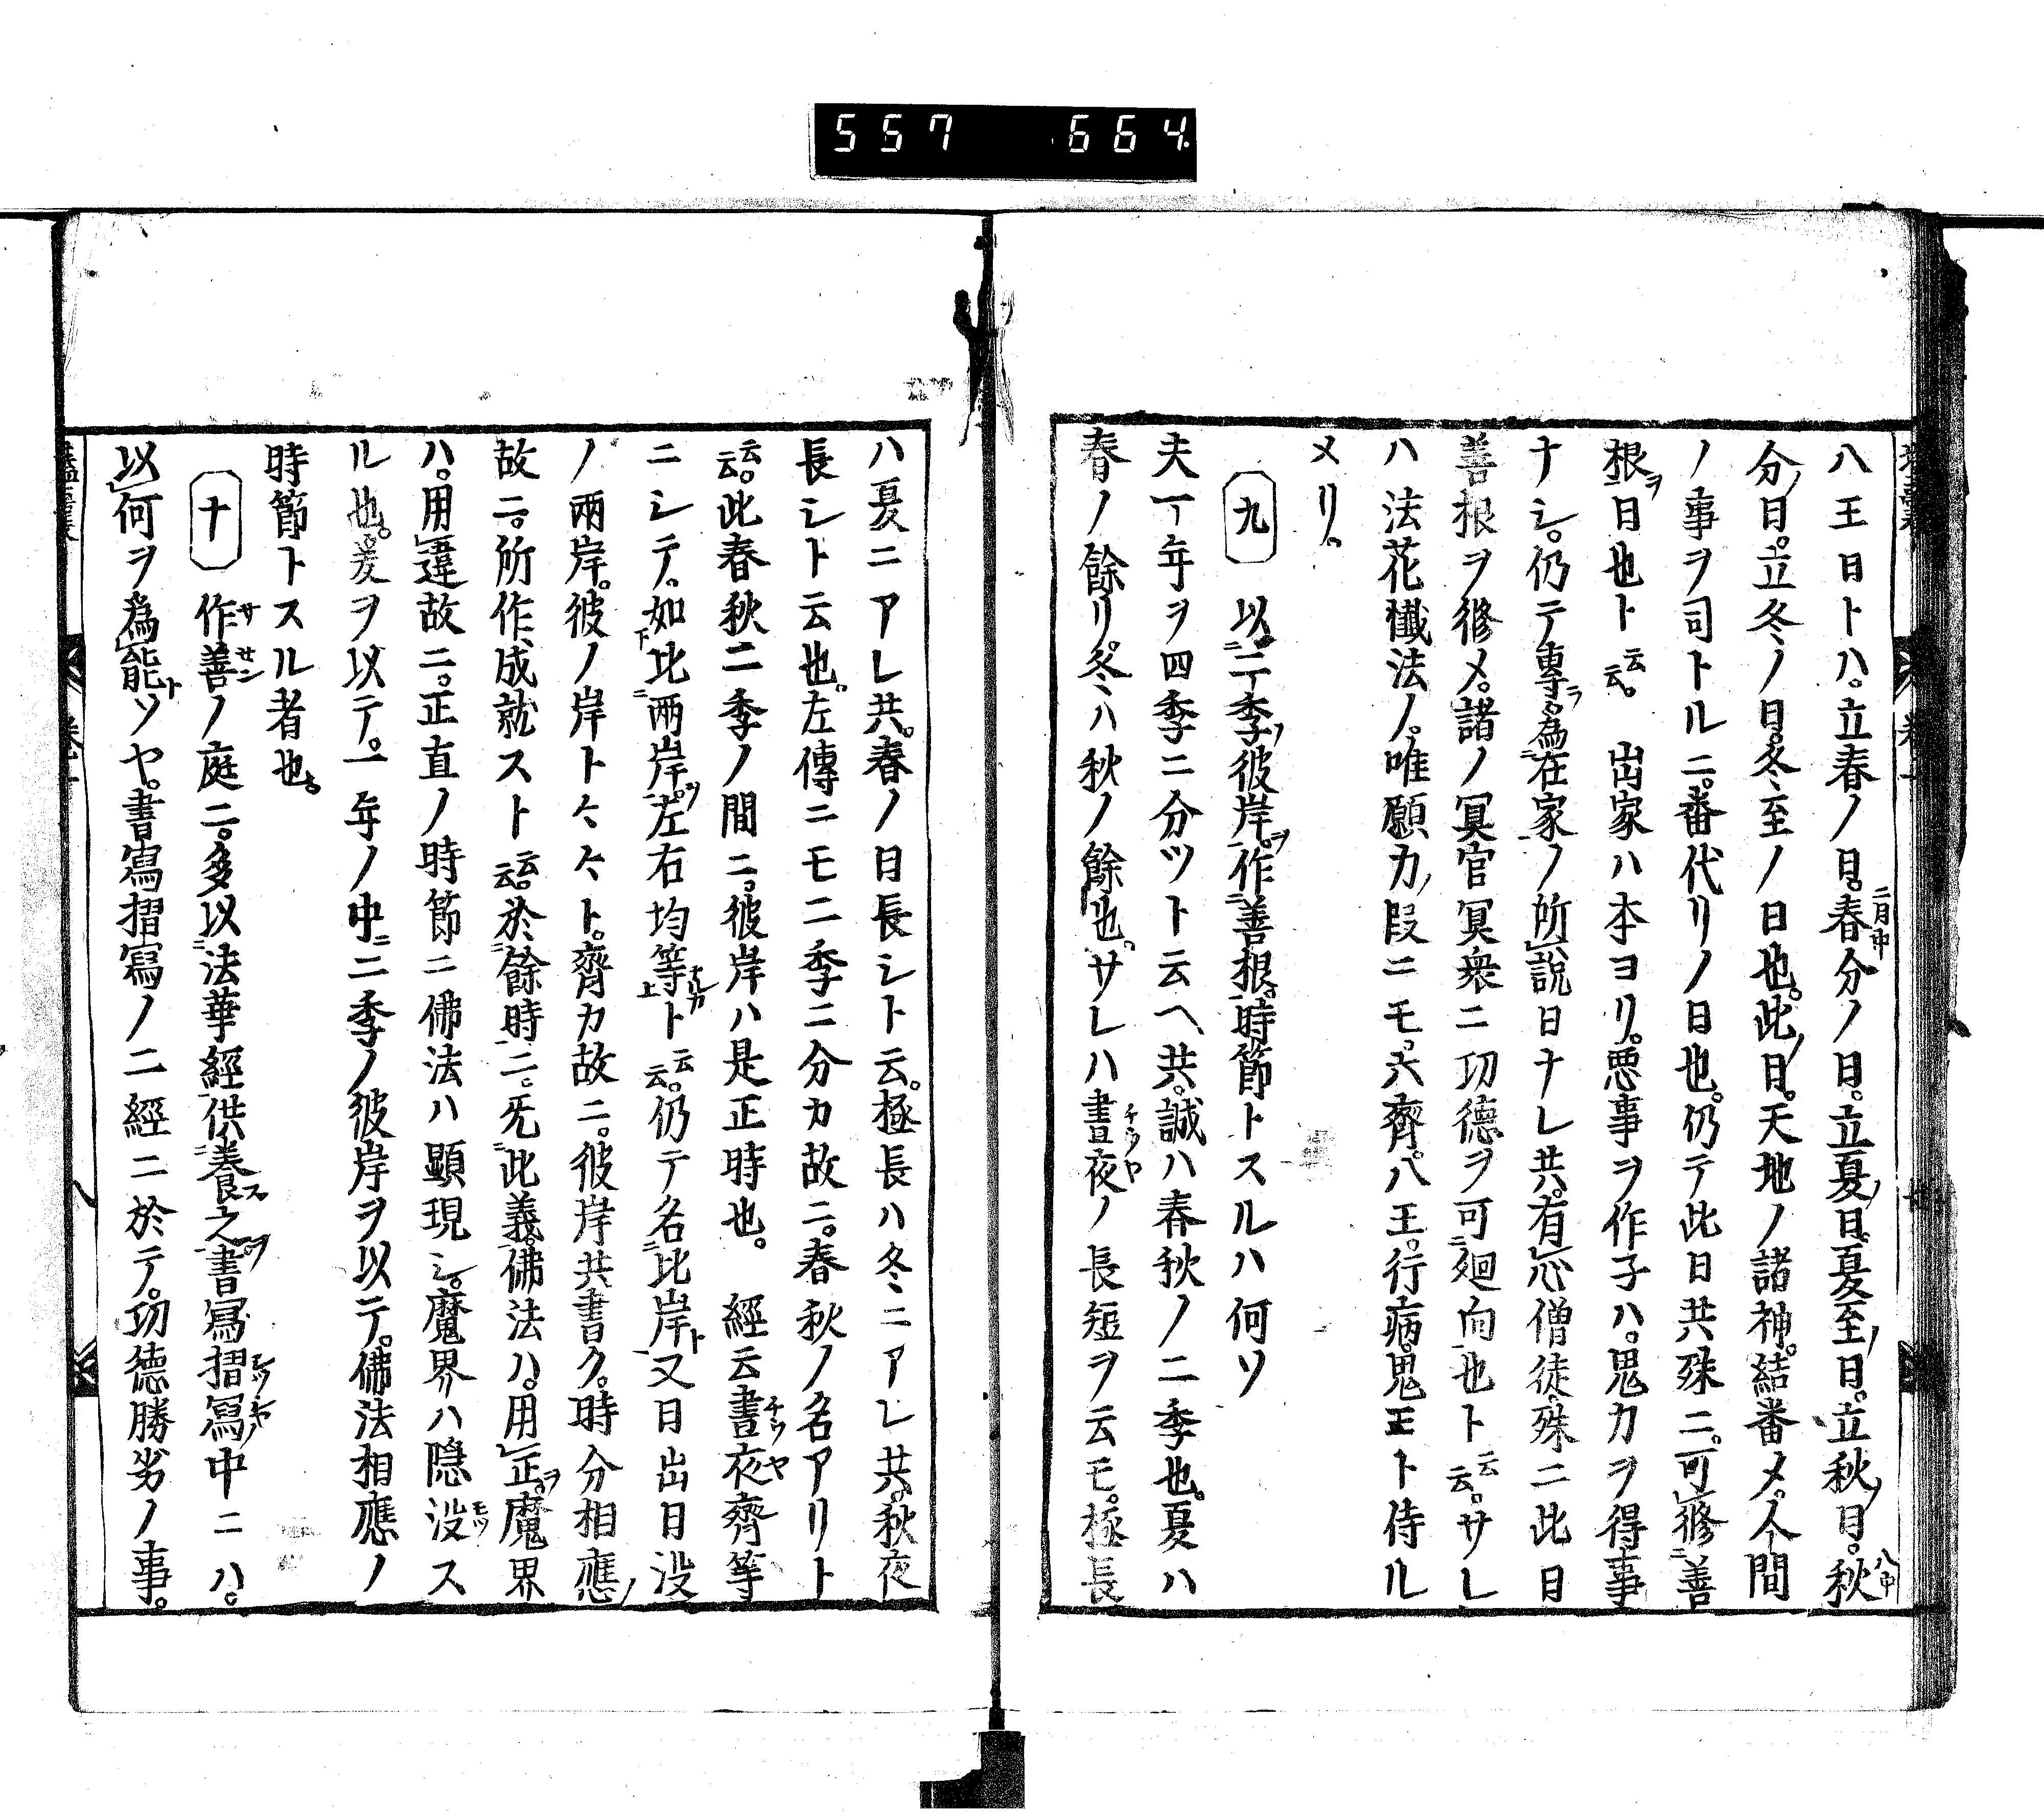 557 664
八王日トハ。立春ノ日。春分ノ日。立夏ノ日。夏至ノ日。立秋ノ日。秋
分ノ日。立冬ノ日。冬至ノ日也。此ノ日。天地ノ諸神。結番メ。人間
ノ事ヲ司トルニ。番代リノ日也。仍テ此日共殊ニ。可修善
根ヲ日也ト云云。 出家ハ本ヨリ。悪事ヲ作子ハ。鬼力ヲ得事
ナシ。仍テ專ヲ。為在家ノ所説日ナレ共。有心僧徒。殊ニ此日
善根ヲ修メ。諸ノ冥官冥衆ニ功德ヲ可廻向也ト云云。サレ
ハ法花懺法ノ。唯願力ノ段ニモ。六齊。八王。行病鬼王ト侍ル
メリ。
九 以二季ノ彼岸ヲ。作善根。時節トスルハ何ソ
夫一年ヲ四季ニ分ツト云ヘ共。誠ハ春秋ノ二季也。夏ハ
春ノ餘リ。冬ハ秋ノ餘也。サレハ晝夜ノ長短ヲ云モ。極長
ハ夏ニアレ共。春ノ日長シト云。極長ハ冬ニアレ共。秋夜
長シト云也。左傳ニモ二季ニ分カ故ニ。春秋ノ名アリト
云云。此春秋二季ノ間ニ。彼岸ハ是正時也。 經云晝夜齊等
ニシテ。如比兩岸ノ。左右均等ナルカト云云。仍テ名比岸ト又日出日没
ノ兩岸。彼ノ岸ト云云ト。齊カ故ニ。彼岸共書ク。時分相應ノ
故ニ。所作成就スト云云。於餘時ニ。旡此義。佛法ハ。用正ヲ。魔界
ハ。用違故ニ。正直ノ時節ニ佛法ハ顯現シ。魔界ハ隠没ス
ル也。爰ヲ以テ。一年ノ中ニ二季ノ彼岸ヲ以テ。佛法相應ノ
時節トスル者也。
十 作善ノ庭ニ。多以法華經供養之ヲ書寫摺寫中ニハ。
以何ヲ為能トソヤ。書寫摺寫ノ二經ニ於テ。功德勝劣ノ事。